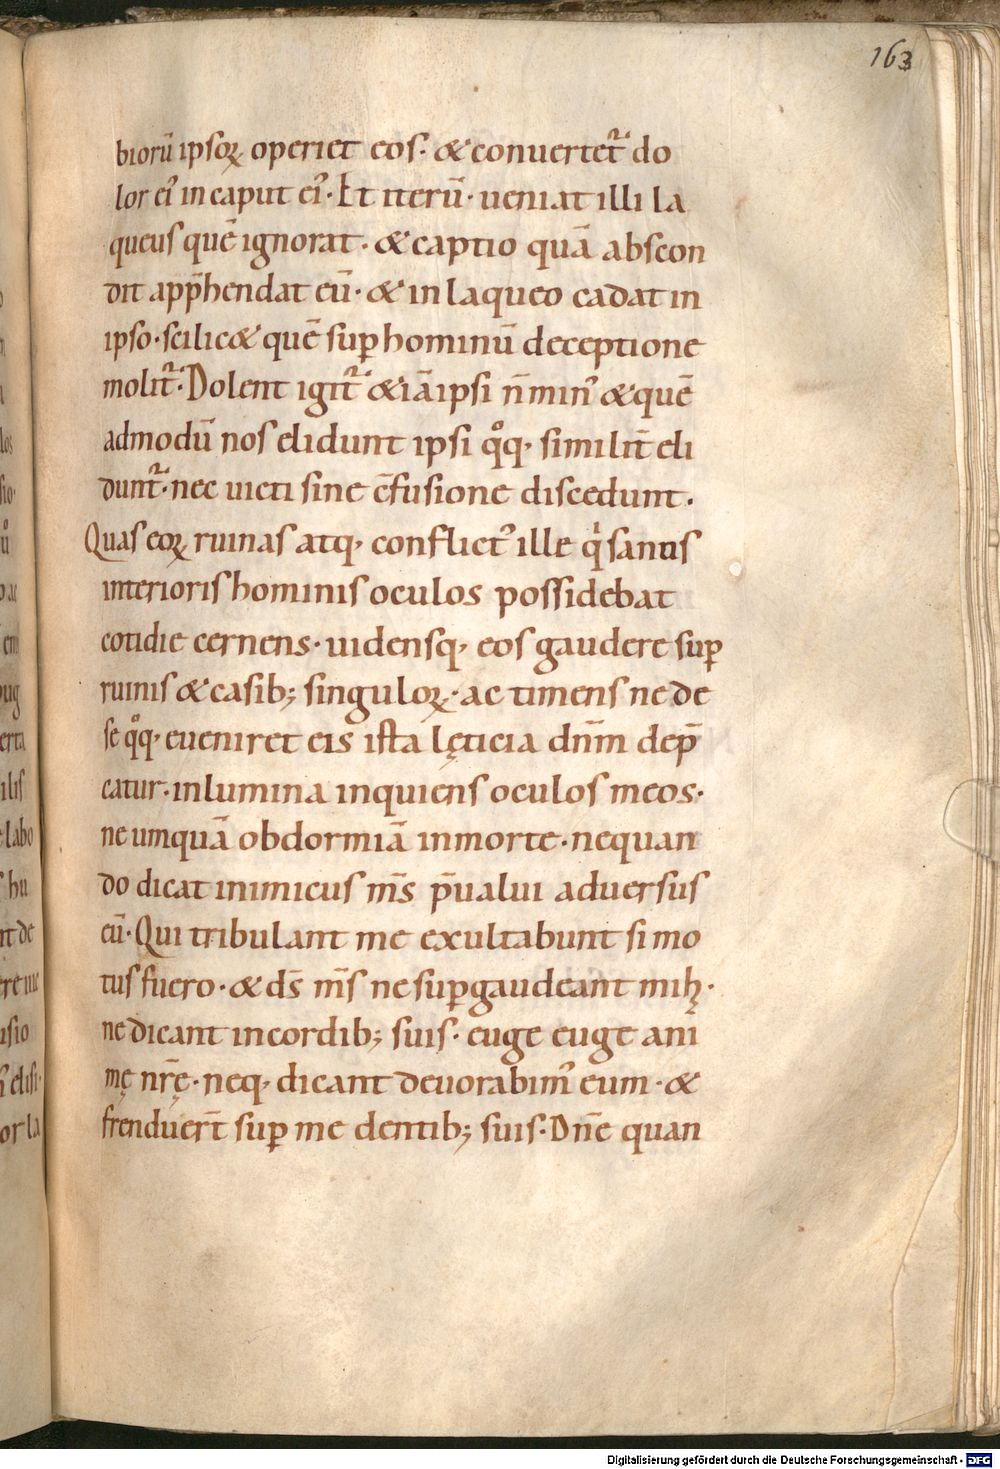 163
biorū ipsoꝝ operiet eos· & conuertet᷑ do
lor ei᷒ in caput ei᷒· Et iterū· ueniat illi la
queus quē ignorat· & captio quā abscon
dit app̄hendat eū· & in laqueo cadat in
ipso· scilic& quē sup hominū deceptione
molit᷑· Dolent igit᷑ & iā ipsi n̄ min᷒ & quē
admodū nos elidunt ipsi qͦq, similit̄ eli
dunt᷑· nec uicti sine c̄fusione discedunt·
Quas eoꝝ ruinas atq, conflict᷒ ille qͥ sanus
interioris hominis oculos possidebat
cotidie cernens· uidensq, eos gaudere sup
ruinis & casib; singuloꝝ· ac timens ne de
se qͦq, eueniret eis ista lęticia dn̄m dep̄
catur· inlumina inquiens oculos meos·
ne umquā obdormiā in morte· nequan
do dicat inimicus m̄s p̄ualui aduersus
eū· Qui tribulant me exultabunt si mo
tus fuero· & ds̄ m̄s ne supgaudeant mihꝫ·
ne dicant in cordib; suis· euge euge ani
mę nr̄ę· neq, dicant deuorabim᷒ eum· &
frenduer̄t sup me dentib; suis· Dn̄e quan
Digitalisierung gefördert durch die Deutsche Forschungsgemeinschaft - DFG